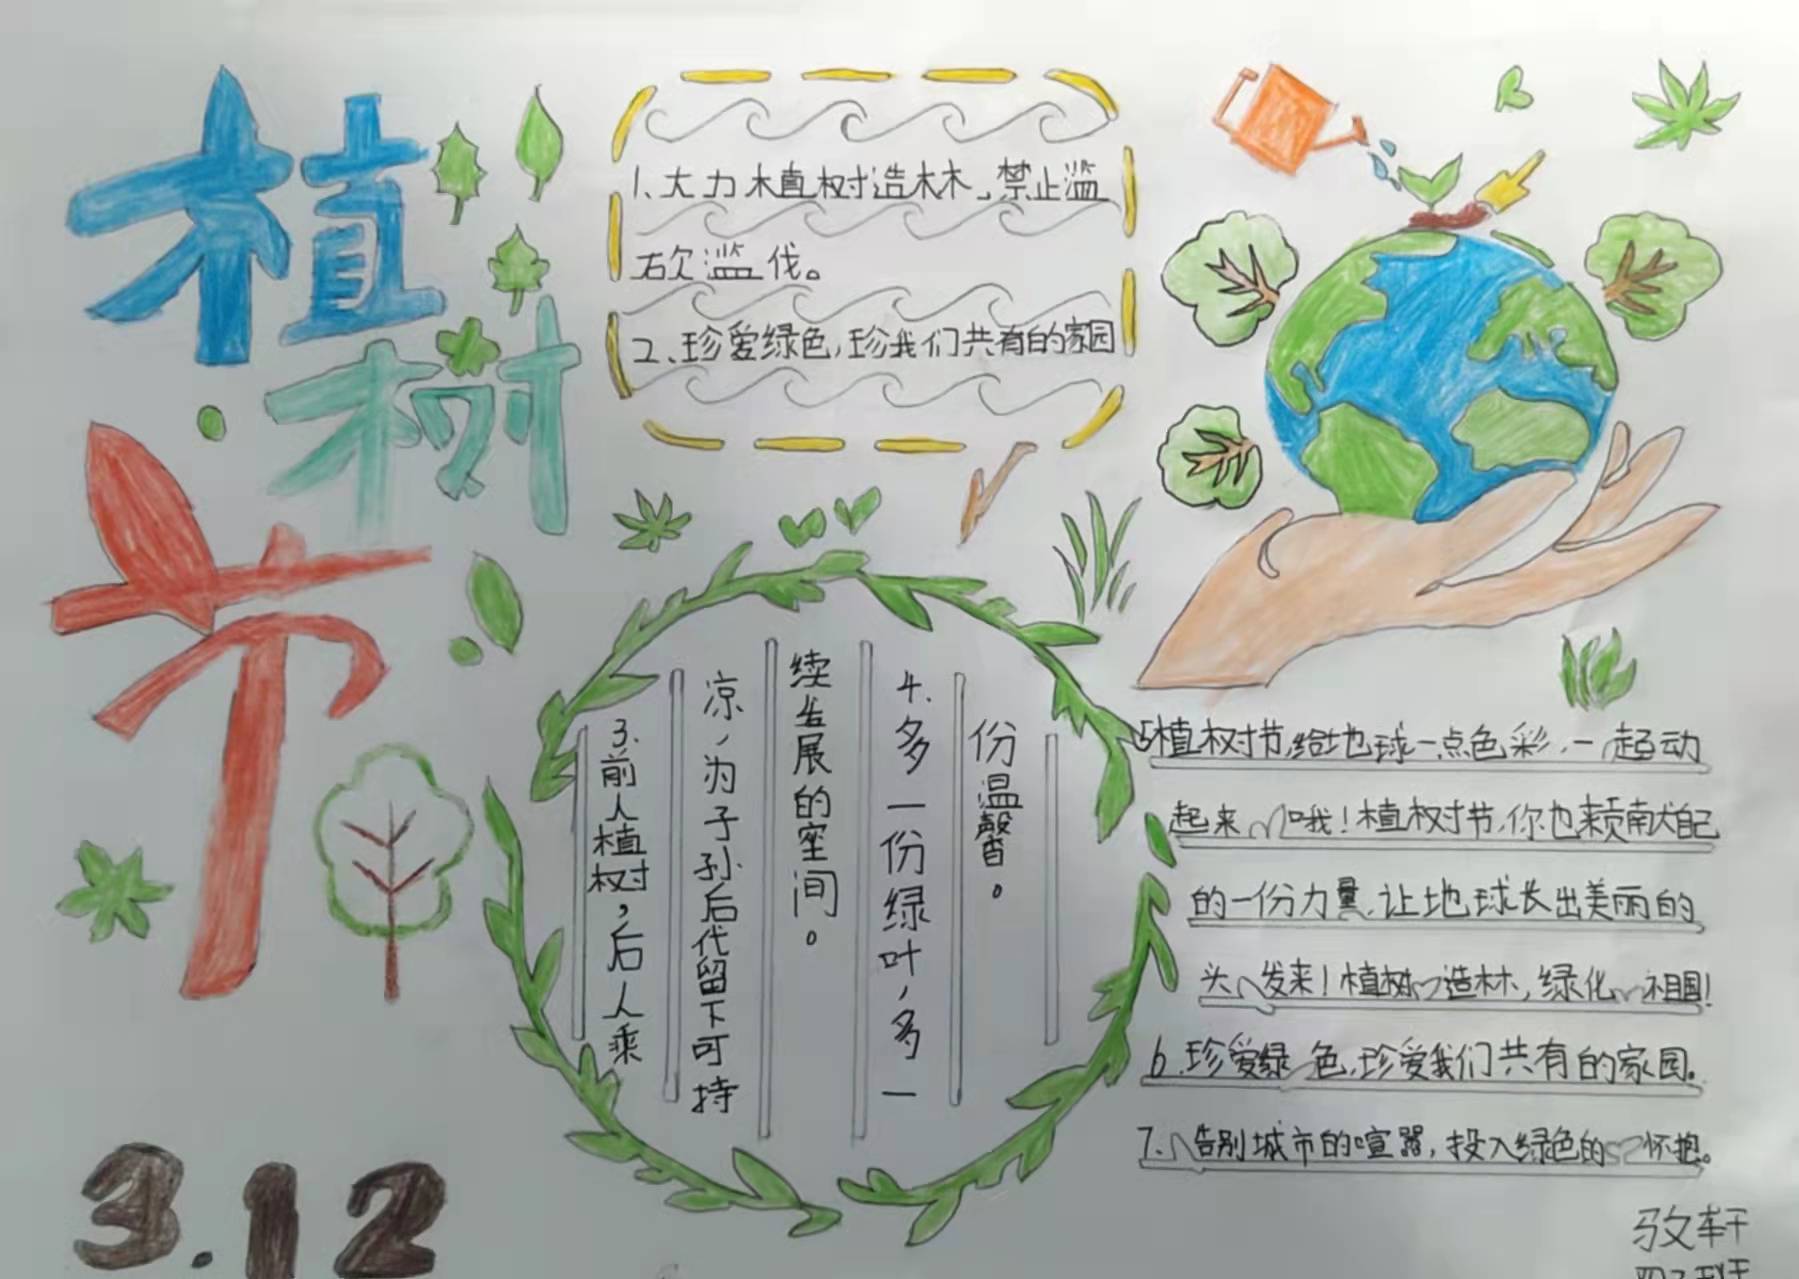 植
树
节
3.12
1、大力植树造林,禁止滥
砍滥伐。
2、珍爱绿色,珍我们共有的家园
3.前人植树,后人乘
凉,为子孙后代留下可持
续发展的空间。
4.多一份绿叶,多一
份温馨。
5植树节,给地球一点色彩,一起动
起来哦!植树节,你也来贡献自己
的一份力量,让地球长出美丽的
头发来!植树造林,绿化祖国!
6.珍爱绿色,珍爱我们共有的家园。
7、告别城市的喧嚣,投入绿色的怀抱。
轩
班